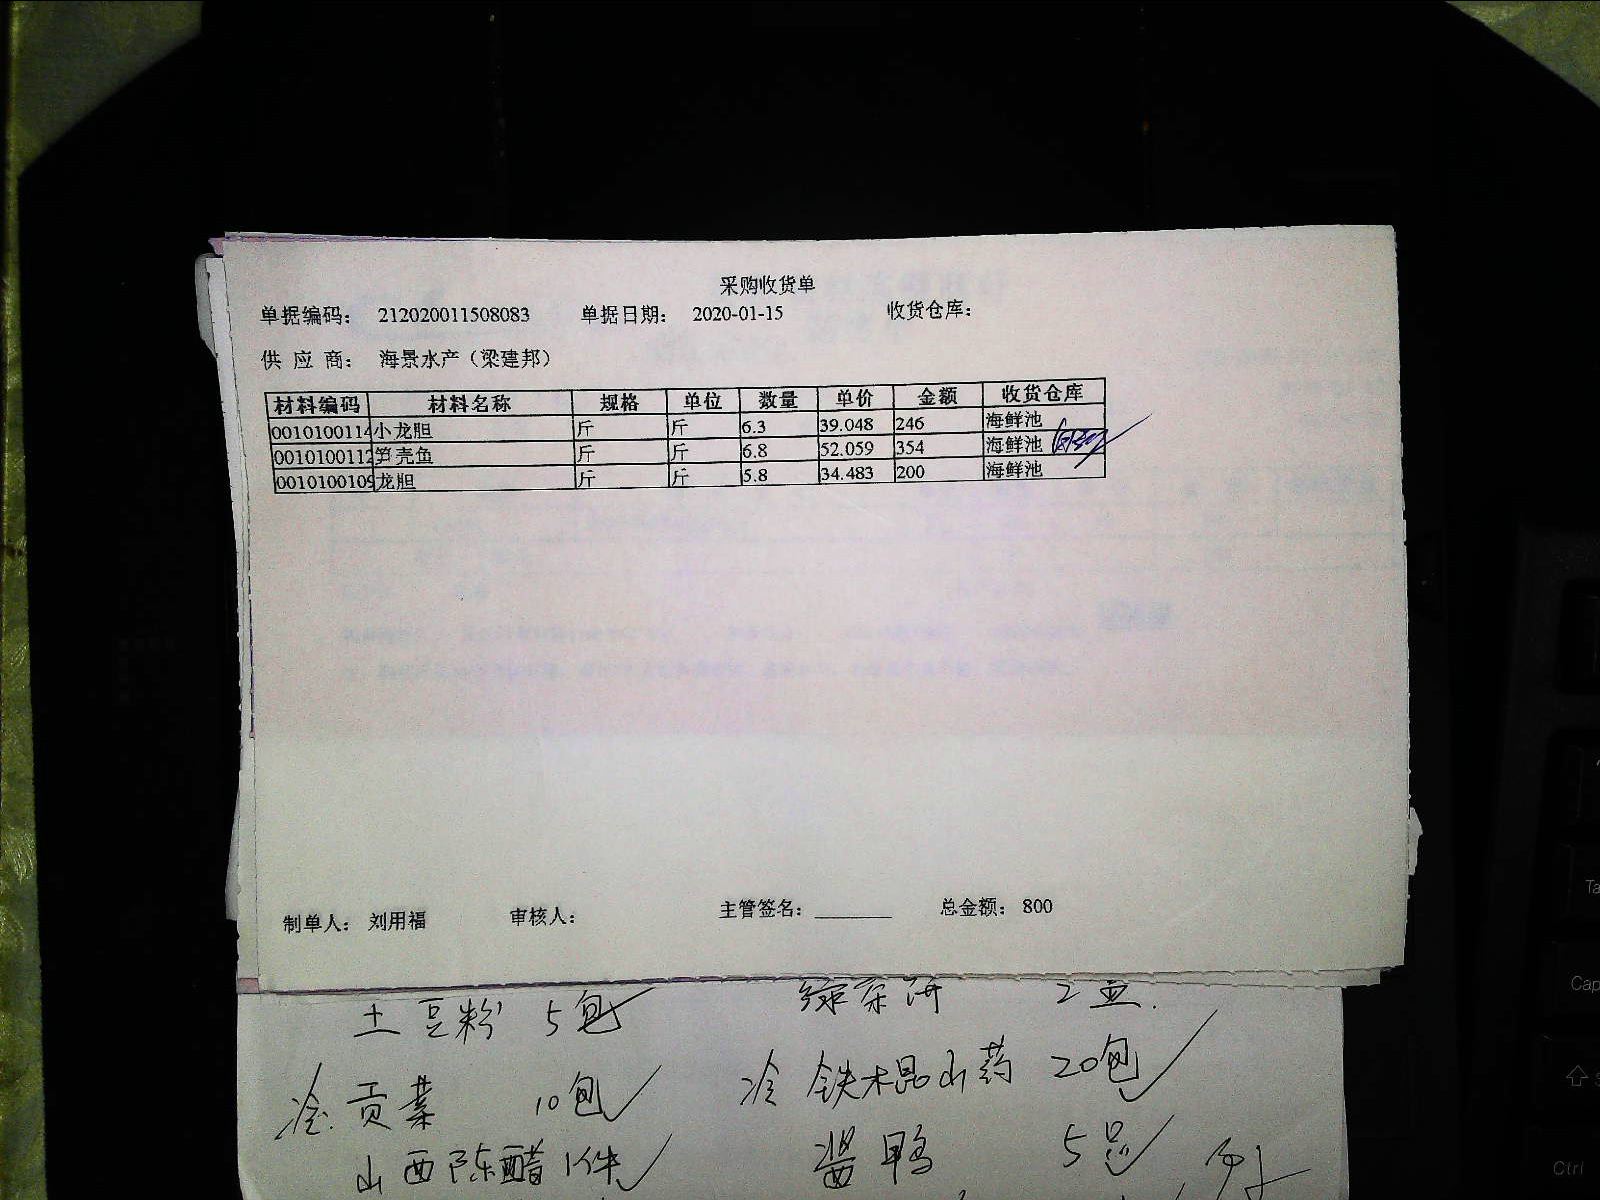 采购收货单
单据编码： 212020011508083 单据日期： 2020-01-15 收货仓库：
供 应 商： 海景水产（梁建邦）
材料编码 材料名称 规格 单位 数量 单价 金额 收货仓库
0010100114 小龙胆 斤 斤 6.3 39.048 246 海鲜池
0010100112 笋壳鱼 斤 斤 6.8 52.059 354 海鲜池
0010100109 龙胆 斤 斤 5.8 34.483 200 海鲜池
制单人： 刘用福 审核人： 主管签名： 总金额： 800
土豆粉 5包 绿茶饼 2盒
冷 贡菜 10包 冷 铁棍山药 20包
山西陈醋 1件 酱鸭 5只
Cap
Ctrl